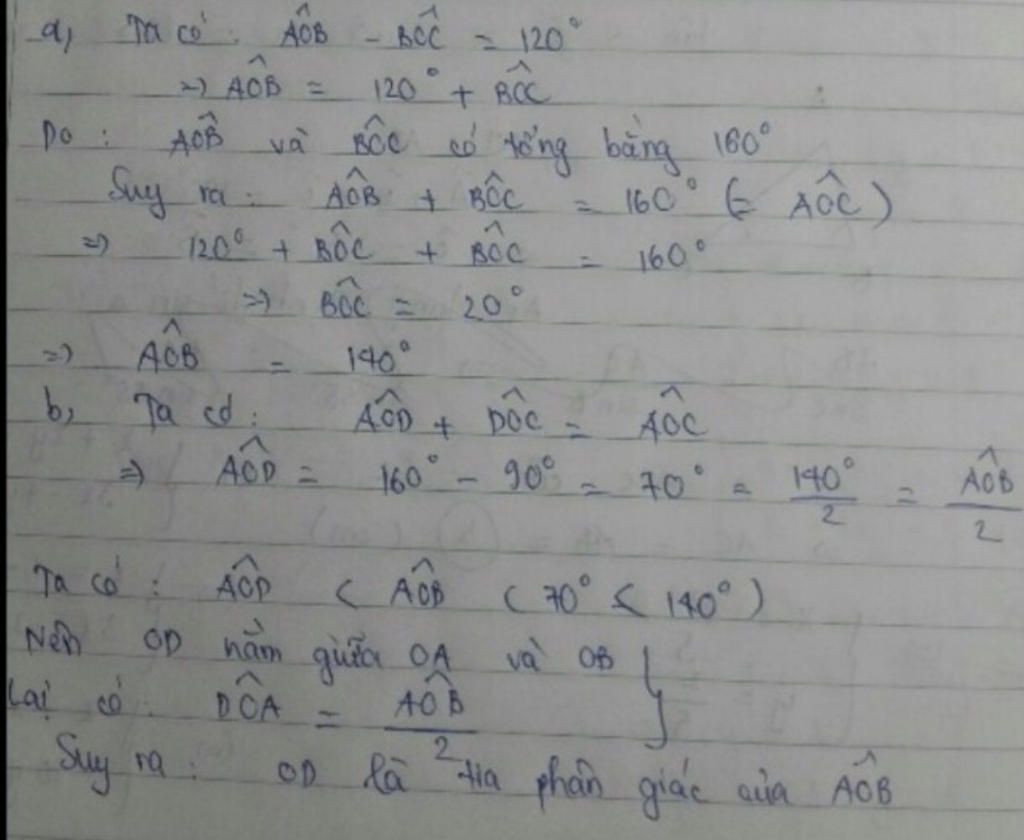 a, Ta có: AÔB - BÔC = 120°
=> AÔB = 120° + BÔC
Do: AÔB và BÔC có tổng bằng 160°
Suy ra: AÔB + BÔC = 160° (= AÔC)
=> 120° + BÔC + BÔC = 160°
=> BÔC = 20°
=> AÔB = 140°
b, Ta có: AÔD + DÔC = AÔC
=> AÔD = 160° - 90° = 70° = 140°/2 = AÔB/2
Ta có: AÔD < AÔB (70° < 140°)
Nên OD nằm giữa OA và OB }
Lại có: DÔA = AÔB/2
Suy ra: OD là tia phân giác của AÔB